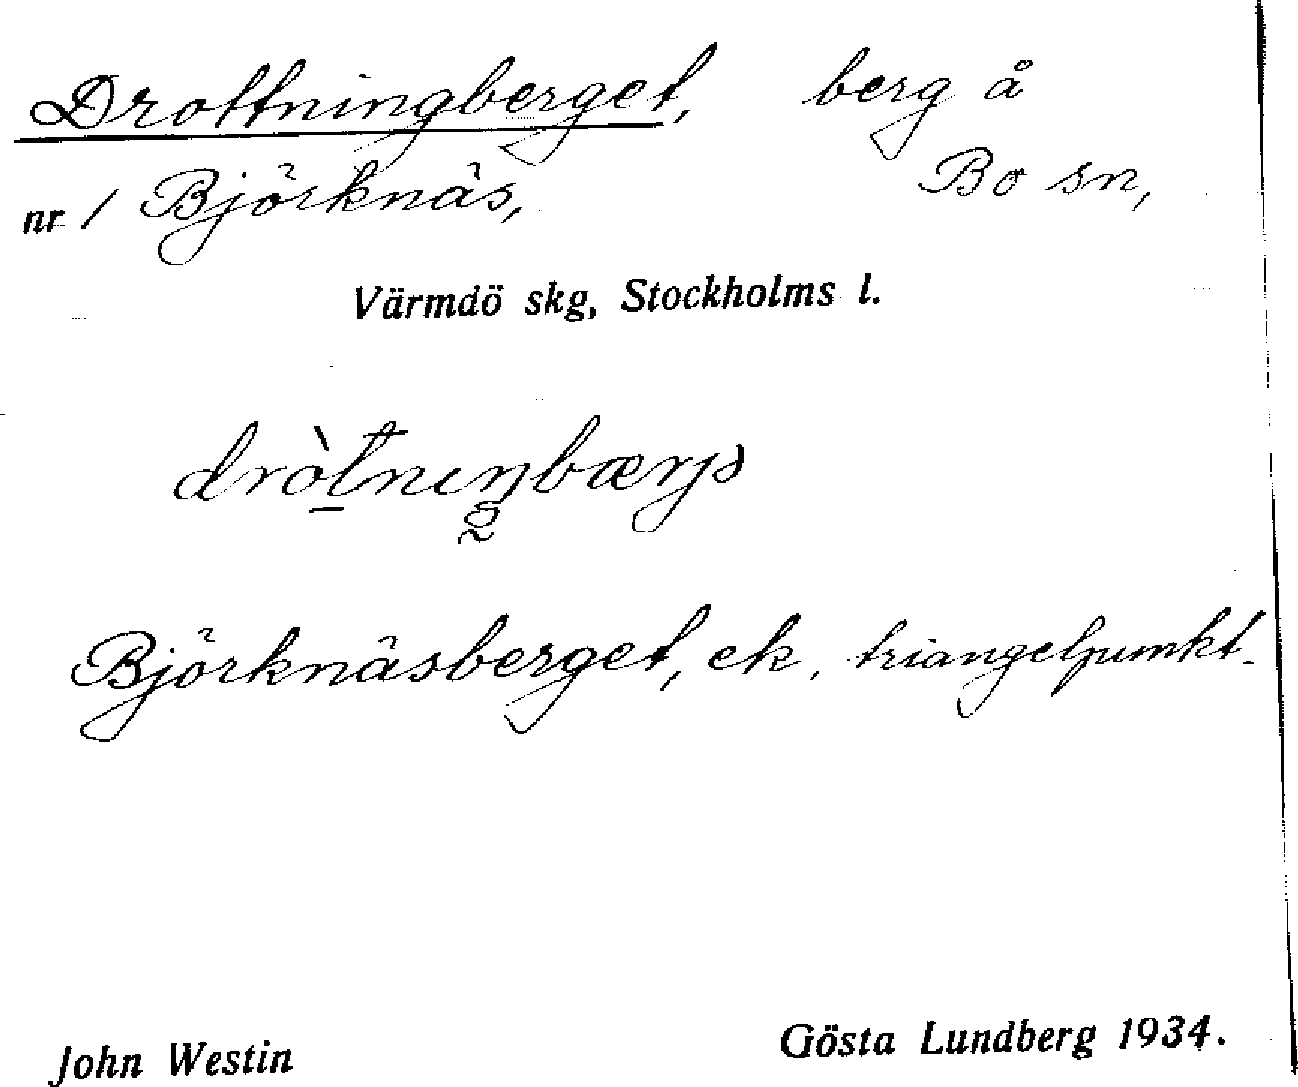 Drottningberget, berg å
nr 1 Björknäs, Bo sn,
Värmdö skg, Stockholms l.
dròtnıŋbærjə
Björknäsberget, ek, triangelpunkt.
John Westin Gösta Lundberg 1934.